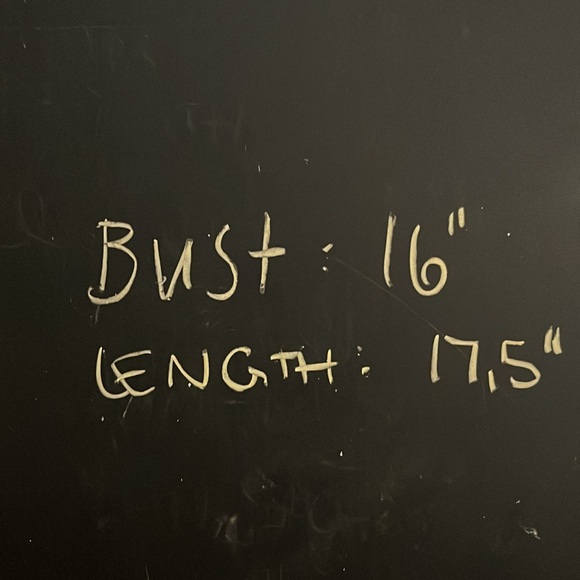 Bust: 16"
LENGTH: 17,5"